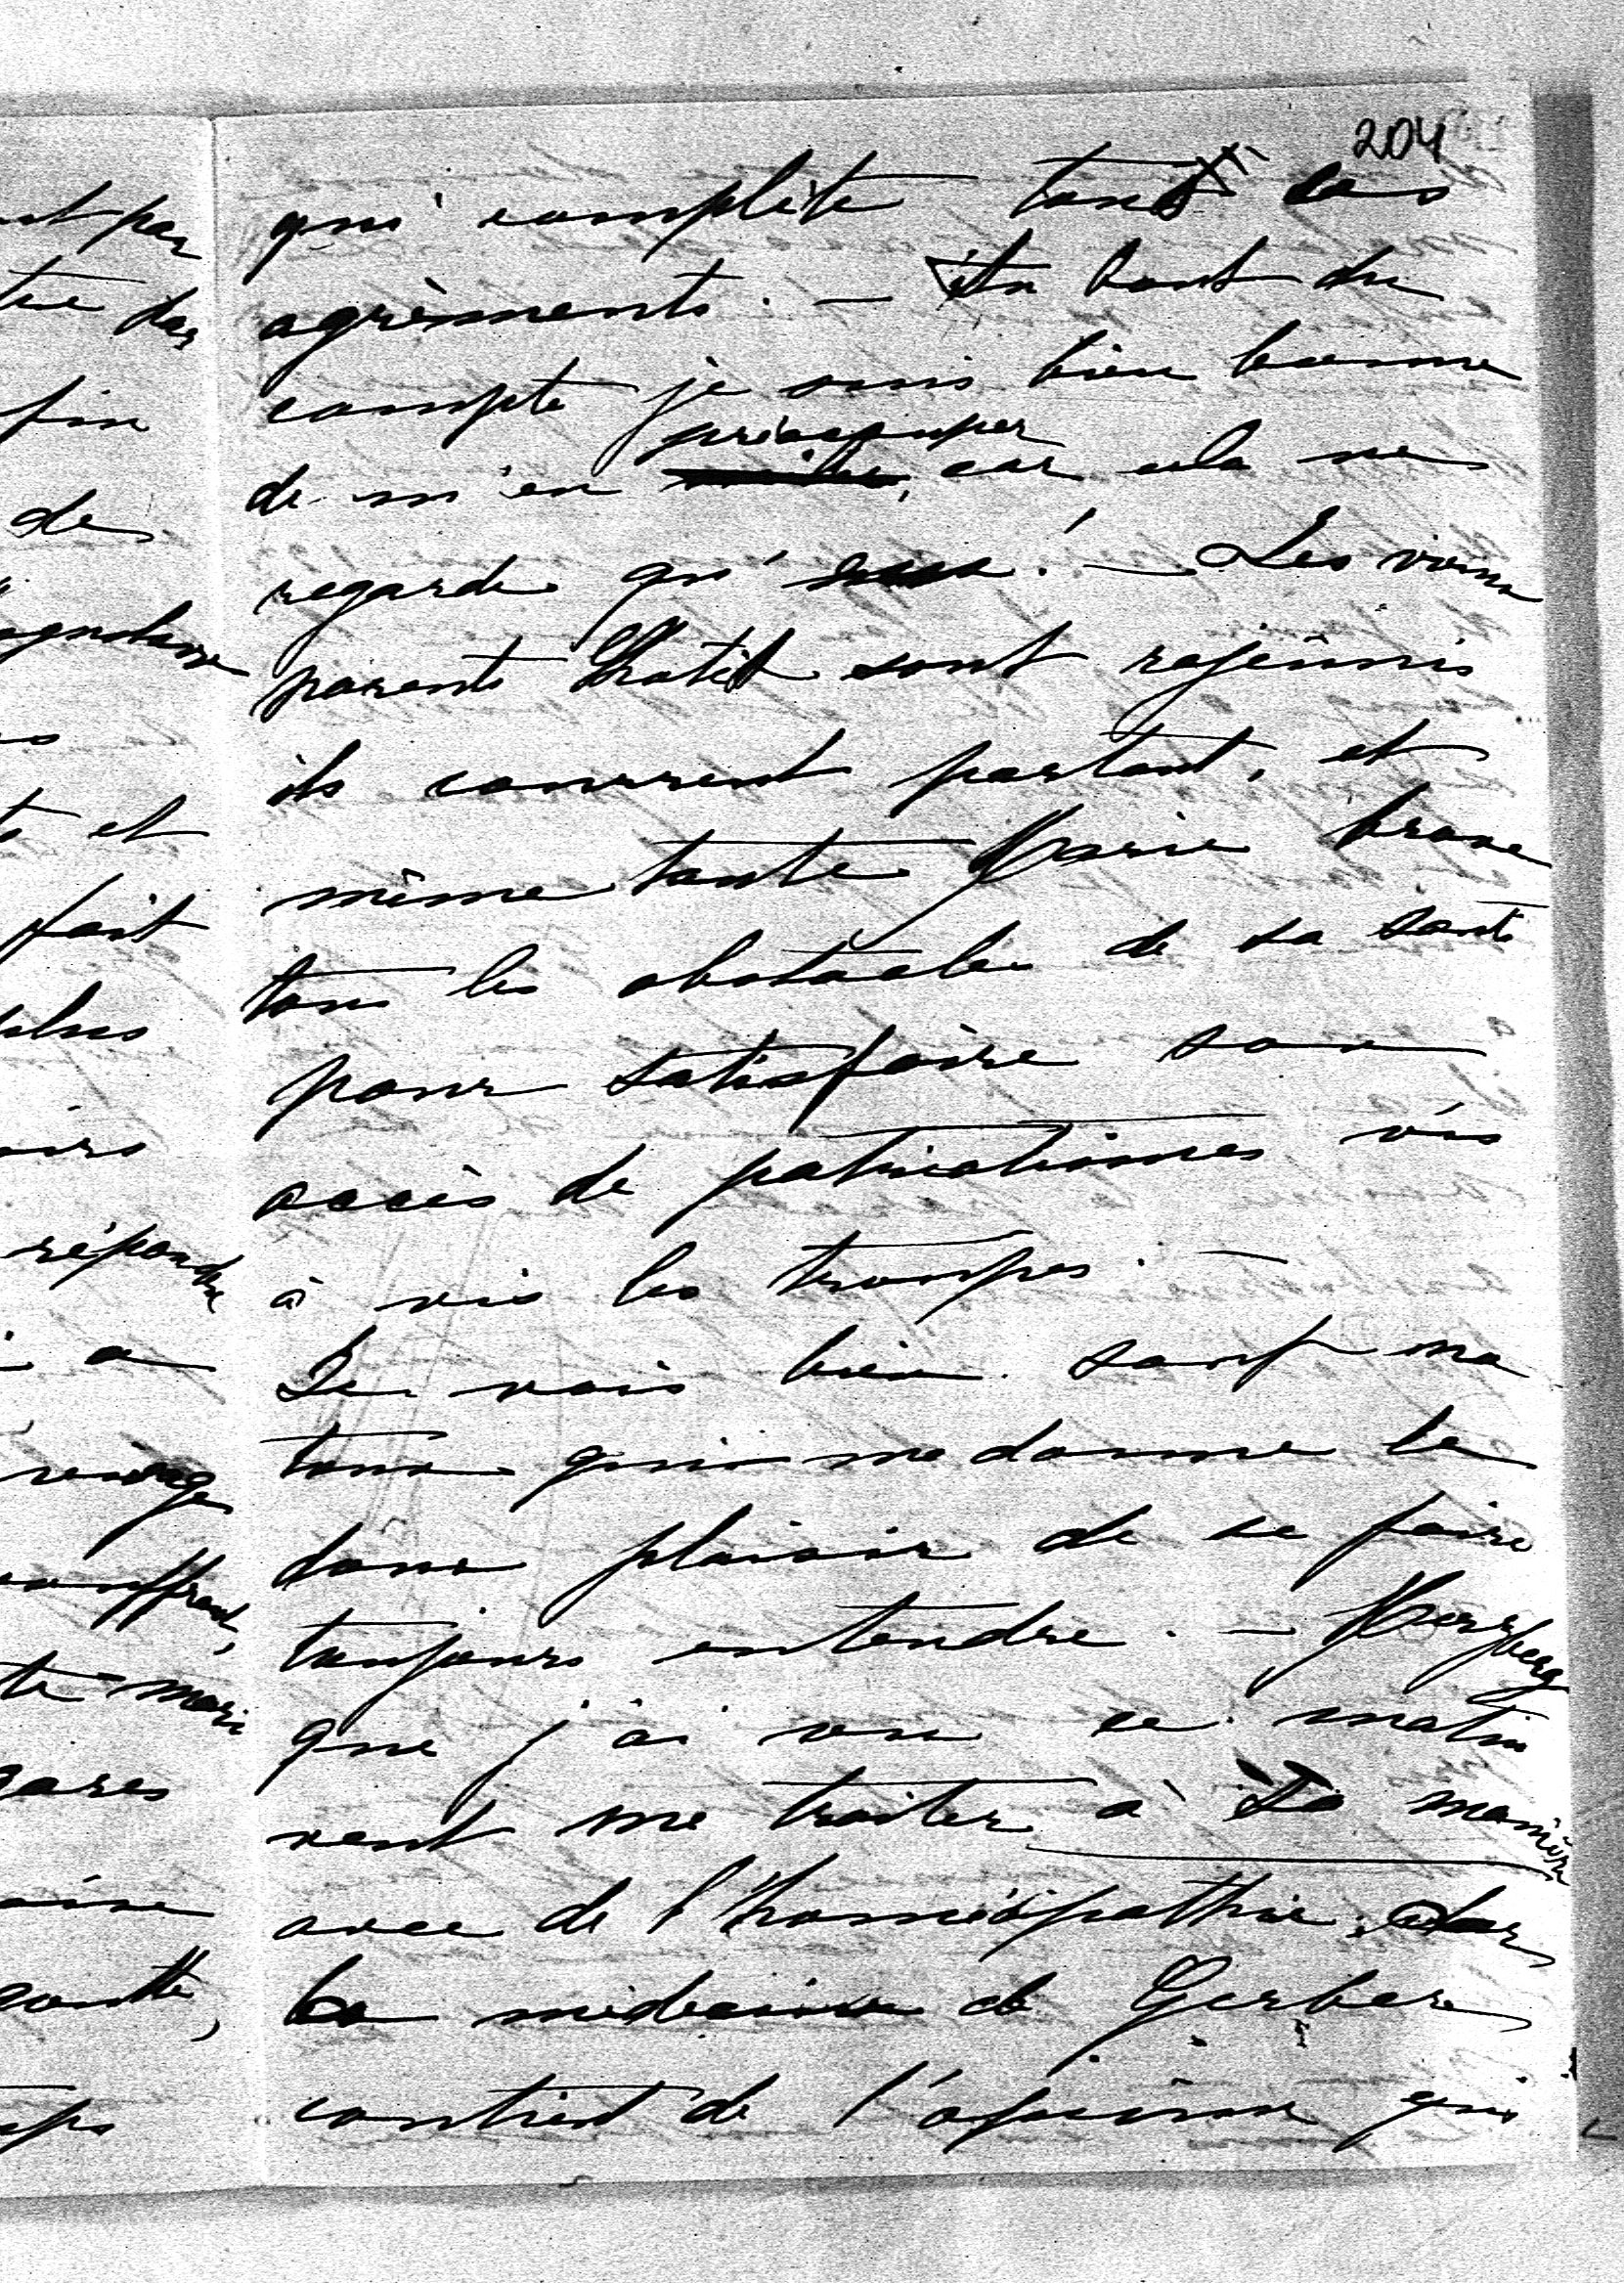 204
qui complète tous ces
agrèments. — Au bout du
compte je suis bien bonne
préoccuper
de m'en car cela ne
regarde qu' ! — Les vieux
parents sont rajeûnis
ils courrent partout, et
même tante Marie brave
tous les obstacles de sa santé
pour satisfaire son
accès de patriotismes vis
à vis les troupes. —
Je vais bien sauf ma
toux qui me donne le
doux plaisir de se faire
toujours entendre. — Herzberg
que j'ai vu ce matin
veut me traiter à sa manière
avec de l'homéopathie, car
la médecine de Gerber
contient de l'opium qui
nt par
tre des
fin
de
et
fait
plus
répondre
a
souffrent,
mari
goutte,